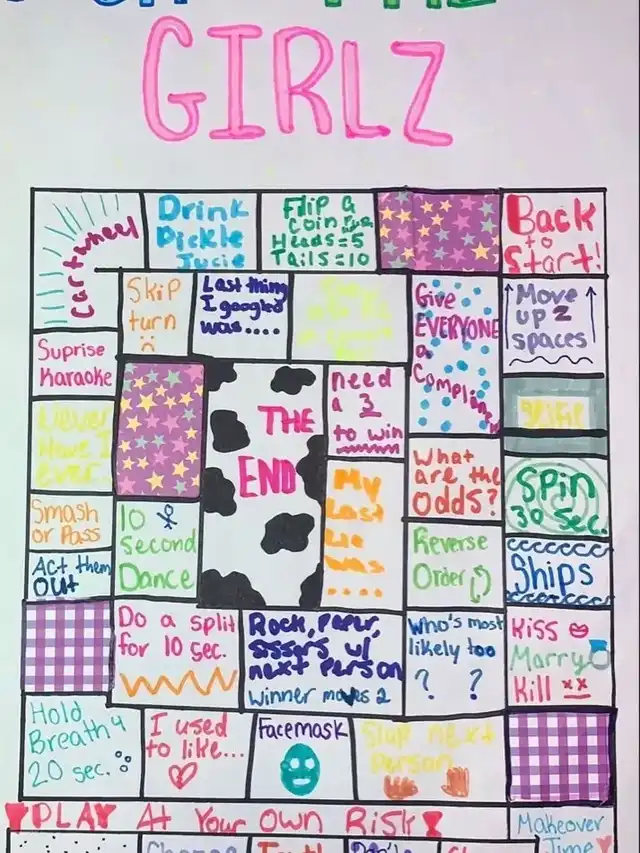 GIRLZ
Cartwheel
Drink
Pickle
Jucie
Flip a
coin
Heads=5
Tails=10
Back
to
Start!
Skip
turn
Last thing
I googled
was....
Give
EVERYONE
a
Compliment
Move
up 2
spaces
Suprise
Karaoke
THE
END
need
a 3
to win
Never
Have I
ever...
What
are the
Odds?
Spin
30 Sec.
Smash
or Pass
10
Second
Dance
My
Last
lie
was
....
Reverse
Order
Ships
Act them
OUt
Do a split
for 10 sec.
Rock, Paper,
next Person
winner moves 2
Who's most
likely too
? ?
Kiss
Marry
Kill xx
Hold
Breath 4
20 sec.
I used
to like...
Facemask
Slap next
Person
PLAY At Your Own Risk
Makeover
Time